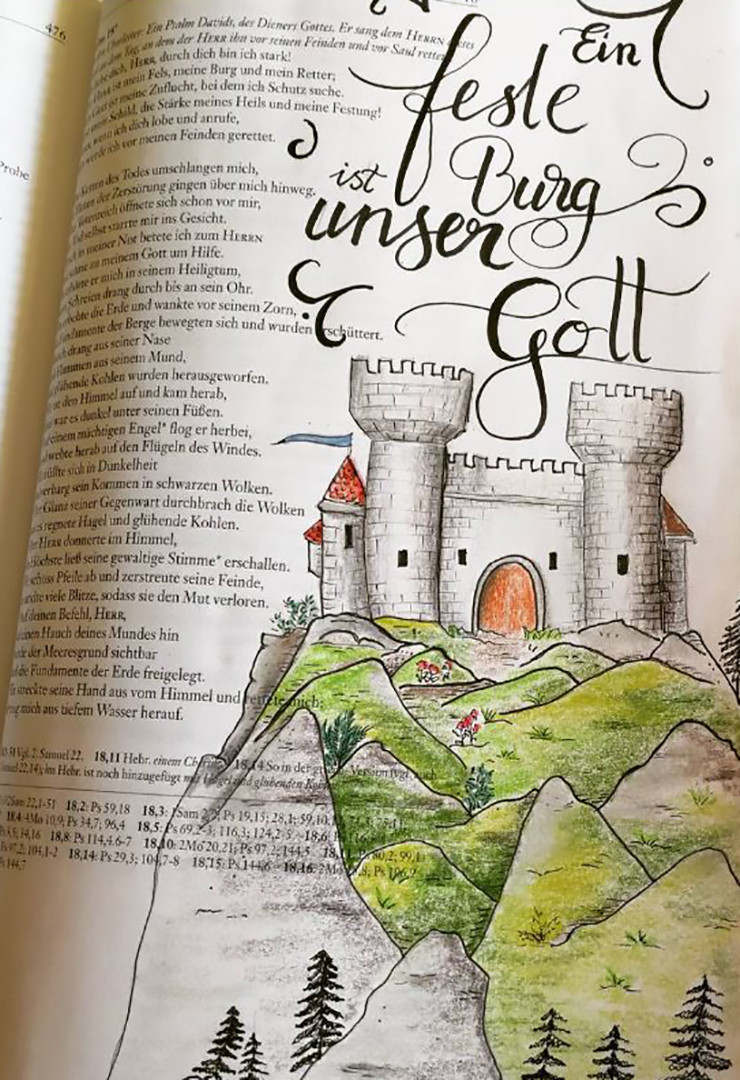 476
Ein Psalm Davids, des Dieners Gottes. Er sang dem HERRN
Tag, an dem der HERR ihn vor seinen Feinden und vor Saul
HERR, durch dich bin ich stark!
ist mein Fels, meine Burg und mein Retter;
ist meine Zuflucht, bei dem ich Schutz suche.
Schild, die Stärke meines Heils und meine Festung!
ich dich lobe und anrufe,
ich vor meinen Feinden gerettet.
des Todes umschlangen mich,
der Zerstörung gingen über mich hinweg.
öffnete sich schon vor mir,
selbst starrte mir ins Gesicht.
in meiner Not betete ich zum HERRN
zu meinem Gott um Hilfe.
er mich in seinem Heiligtum,
Schreien drang durch bis an sein Ohr.
die Erde und wankte vor seinem Zorn,
der Berge bewegten sich und wurden erschüttert.
drang aus seiner Nase
aus seinem Mund,
glühende Kohlen wurden herausgeworfen.
den Himmel auf und kam herab,
war es dunkel unter seinen Füßen.
einem mächtigen Engel* flog er herbei,
herab auf den Flügeln des Windes.
sich in Dunkelheit
sein Kommen in schwarzen Wolken.
Glanz seiner Gegenwart durchbrach die Wolken
regnete Hagel und glühende Kohlen.
HERR donnerte im Himmel,
Höchste ließ seine gewaltige Stimme* erschallen.
Pfeile ab und zerstreute seine Feinde,
viele Blitze, sodass sie den Mut verloren.
deinen Befehl, HERR,
Hauch deines Mundes hin
der Meeresgrund sichtbar
die Fundamente der Erde freigelegt.
streckte seine Hand aus vom Himmel und rettete mich;
mich aus tiefem Wasser herauf.
Vgl. 2. Samuel 22. 18,11 Hebr. einem 18,14 So in der
im Hebr. ist noch hinzugefügt glühenden
22,1-51 18,2: Ps 59,18 18,3: Ps 19,15; 28,1; 59,10
18,4: 10,9; Ps 34,7; 96,4 18,5: Ps 69,2-3; 116,3; 124,2-5
18,8: Ps 114,4.6-7 18,10: 2Mo 20,21; Ps 97,2; 144,5
104,1-2 18,14: Ps 29,3; 104,7-8 18,15: Ps 144,6 18,16:
Probe
Ein
feste
Burg
ist
unser
Gott